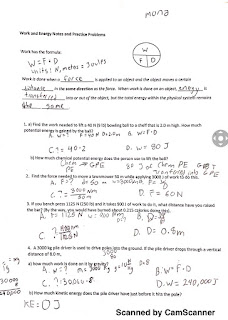 mona
Work and Energy Notes and Practice Problems
Work has the formula:
W = F · D
W
F D
units: N, metas = Joules
Work is done when a force is applied to an object and the object moves a certain
distance in the same direction as the force. When work is done on an object, energy is
transferred into or out of the object, but the total energy within the physical system remains
the same
1. a) Find the work needed to lift a 40 N (9 lb) bowling ball to a shelf that is 2.0 m high. How much
potential energy is gained by the ball?
A. W=? F=40N D=2.0m B. W=F·D
C. ?=40·2 D. W=80J
b) How much chemical potential energy does the person use to lift the ball?
Chem → GPE
PE
80 J of Chem PE
transferred into GPE
2. Find the force needed to move a lawnmower 50 m while applying 3000 J of work to do this.
A. F=? d=50m w=3000J
C. D. F=60N
3. If you bench press 1125 N (250 lb) and it takes 900 J of work to do it, what distance have you raised
the bar? (By the way, you would have burned about 0.215 Calories doing this).
A. F=1125N w=900J
B. D=W/F
C. D. D=0.8m
4. A 3000 kg pile driver is used to drive poles into the ground. If the pile driver drops through a vertical
distance of 8.0 m,
a) how much work is done on it by gravity?
A. W=? B. W=F·D
C. ?=30000·8 D. W=240,000J
b) How much kinetic energy does the pile driver have just before it hits the pole?
KE=
Scanned by CamScanner